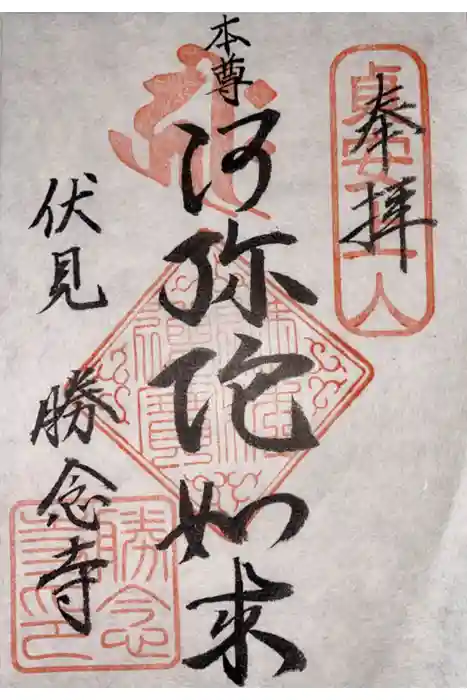 奉拝
貞安上人
本尊
阿弥陀如来
伏見 勝念寺
勝念